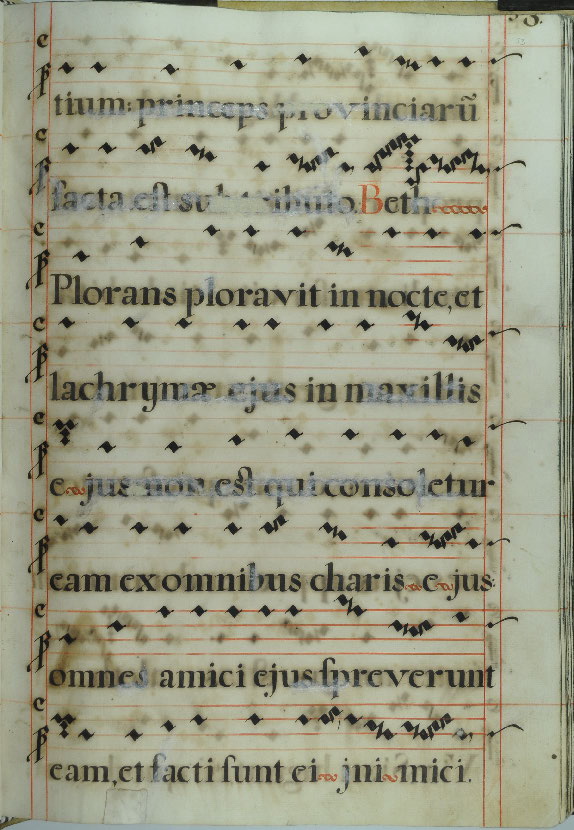 tium: princeps provinciarū
facta est sub tributo. Beth
Plorans ploravit in nocte, et
lachrymæ ejus in maxillis
ejus non est qui consoletur
eam ex omnibus charis ejus:
omnes amici ejus spreverunt
eam, et facti sunt ei jnimici.